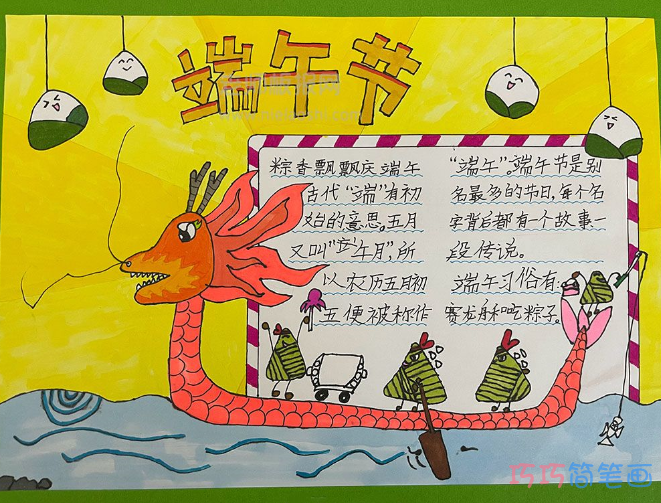 端午节
粽香飘飘庆端午
古代“端”有初
始的意思。五月
又叫“午月”,所
以农历五月初
五便被称作
“端午”。端午节是别
名最多的节日,每个名
字背后都有一个故事一
段传说。
端午习俗有:
赛龙舟和吃粽子。
巧巧简笔画